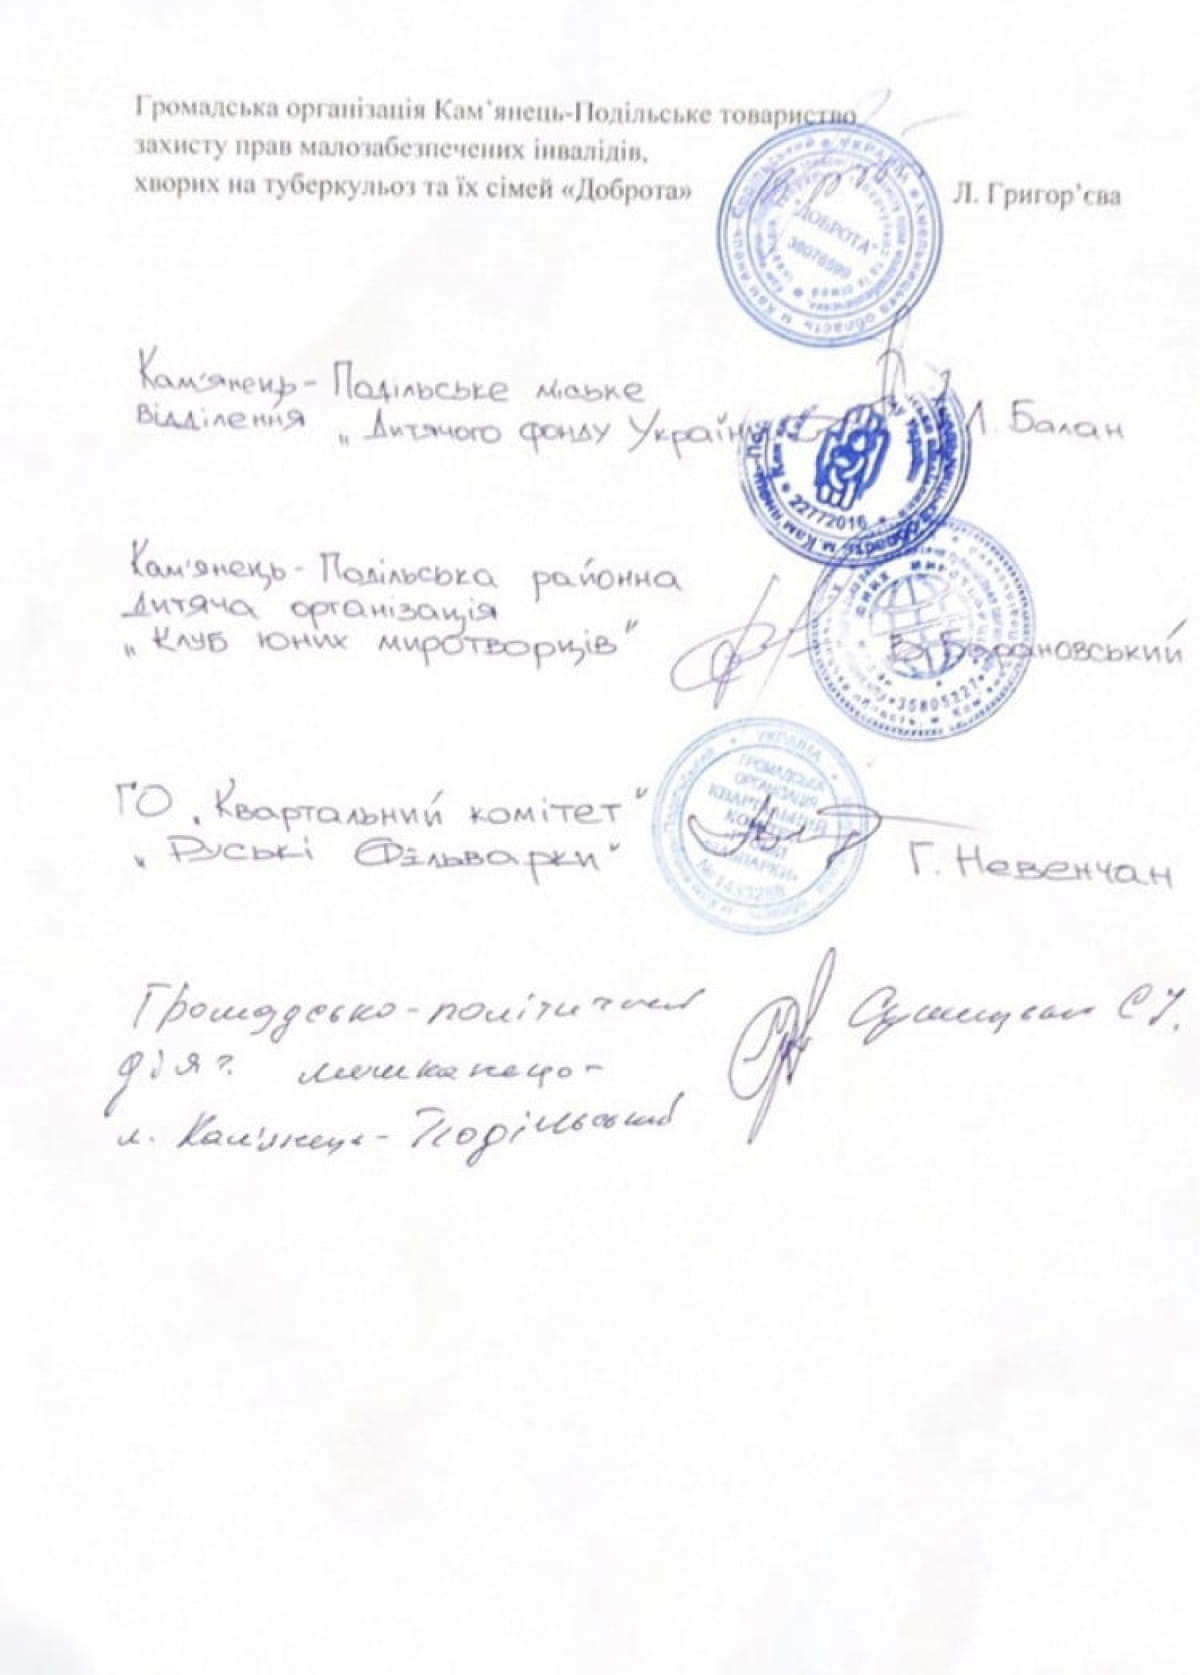 Громадська організація Кам’янець-Подільське товариство
захисту прав малозабезпечених інвалідів,
хворих на туберкульоз та їх сімей «Доброта» Л. Григор’єва
"ДОБРОТА"
38076599
Кам'янець-Подільське міське
відділення „Дитячого фонду України" Л. Балан
22772016
Кам'янець-Подільська районна
дитяча організація
„Клуб юних миротворців" В. Барановський
35805227
ГО „Квартальний комітет"
„Руські Фільварки" Г. Невенчан
УКРАЇНА
ГРОМАДСЬКА
ОРГАНІЗАЦІЯ
КВАРТАЛЬНИЙ
Громадсько-політичний
діяч.
м. Кам'янець-Подільський